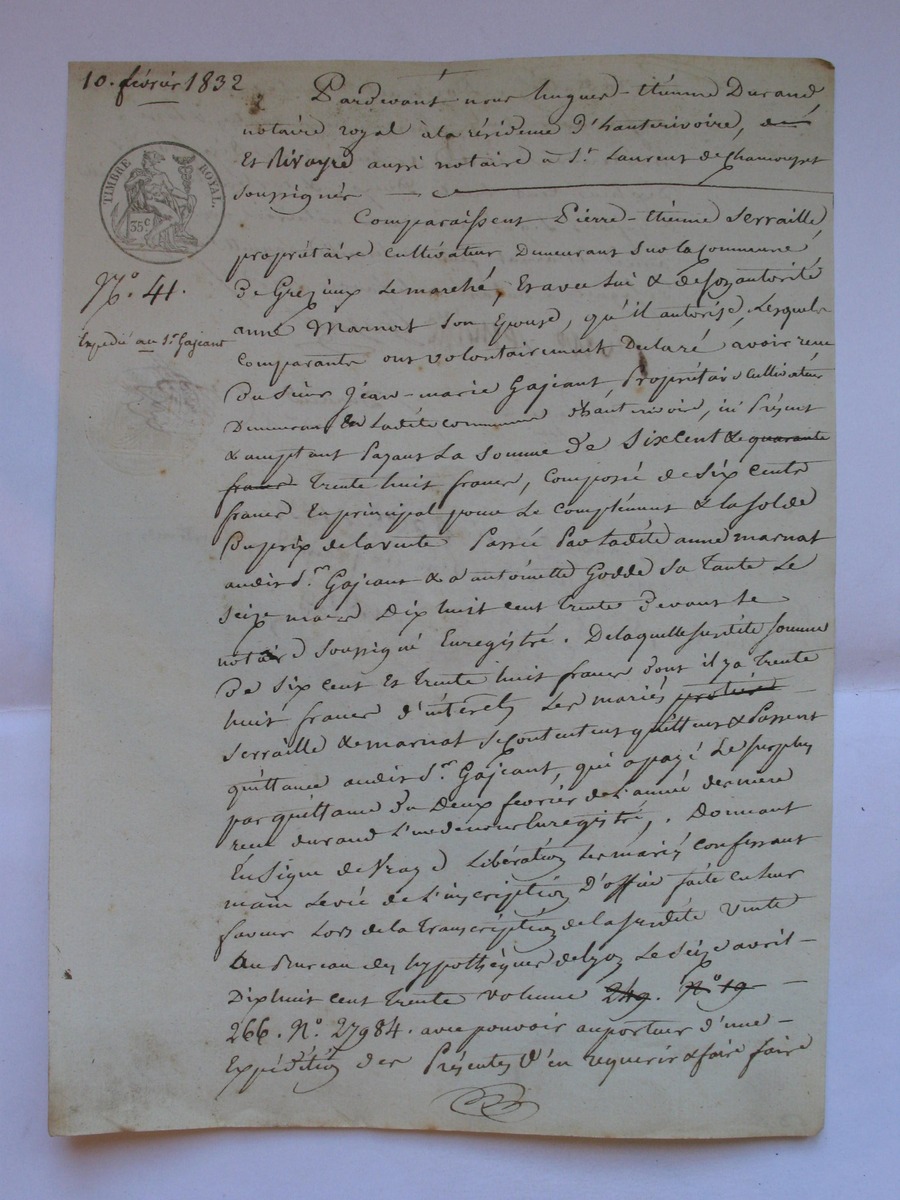 10. février 1832
Pardevant nous hugues-étienne Durand,
notaire royal à la résidence d'hauterivoire,
Et Rivoyre aussi notaire à St. Laurent de Chamousset
soussignés
TIMBRE ROYAL.
35 c
Comparaissent Pierre-étienne Serraille,
propriétaire cultivateur Demeurant sur la Commune
N° 41.
De Grezieux Le marché, Et avec lui & de son autorité
anne Marnat son Epouse, qu'il autorise, Lesquels
Expedié au Sr Gajeant
Comparants ont volontairement Declaré, avoir reçu
Du Sieur Jean-marie Gajeant, Propriétaire Cultivateur
Demeurant En Ladite commune d'hauterivoire, ici Présent
& acceptant Payant La Somme De Sixcent & quarante
francs Trente huit francs, Composée de Six cents
francs En principal pour Le Complément & la solde
Du prix de la vente Passée Par Ladite anne marnat
audit Sr. Gajeant & a antoinette Godde sa Tante Le
seize mars Dix huit cent trente Devant Le
notaire soussigné Enregistré. De laquelle susdite somme
De six cent Et trente huit francs dont il y a trente
huit francs d'intérêts Les mariés
Serraille & marnat se contentent quittent & Passent
quittance audit Sr. Gajeant, qui a payé Le surplus
par quittance Du Deux février de L'année dernière
reçue durand L'un de nous Enregistrée. Donnant
En Signe de Vraye Libération Les mariés confessant
main Levée de L'inscription D'office faite en leur
faveur Lors de la Transcription de la susdite Vente
Au Bureau des hypothèques de Lyon Le Seize avril
Dix huit cent trente volume 249. N° 19
266. N° 27984. avec pouvoir au porteur d'une
Expédition des Présentes D'en requerir & faire faire